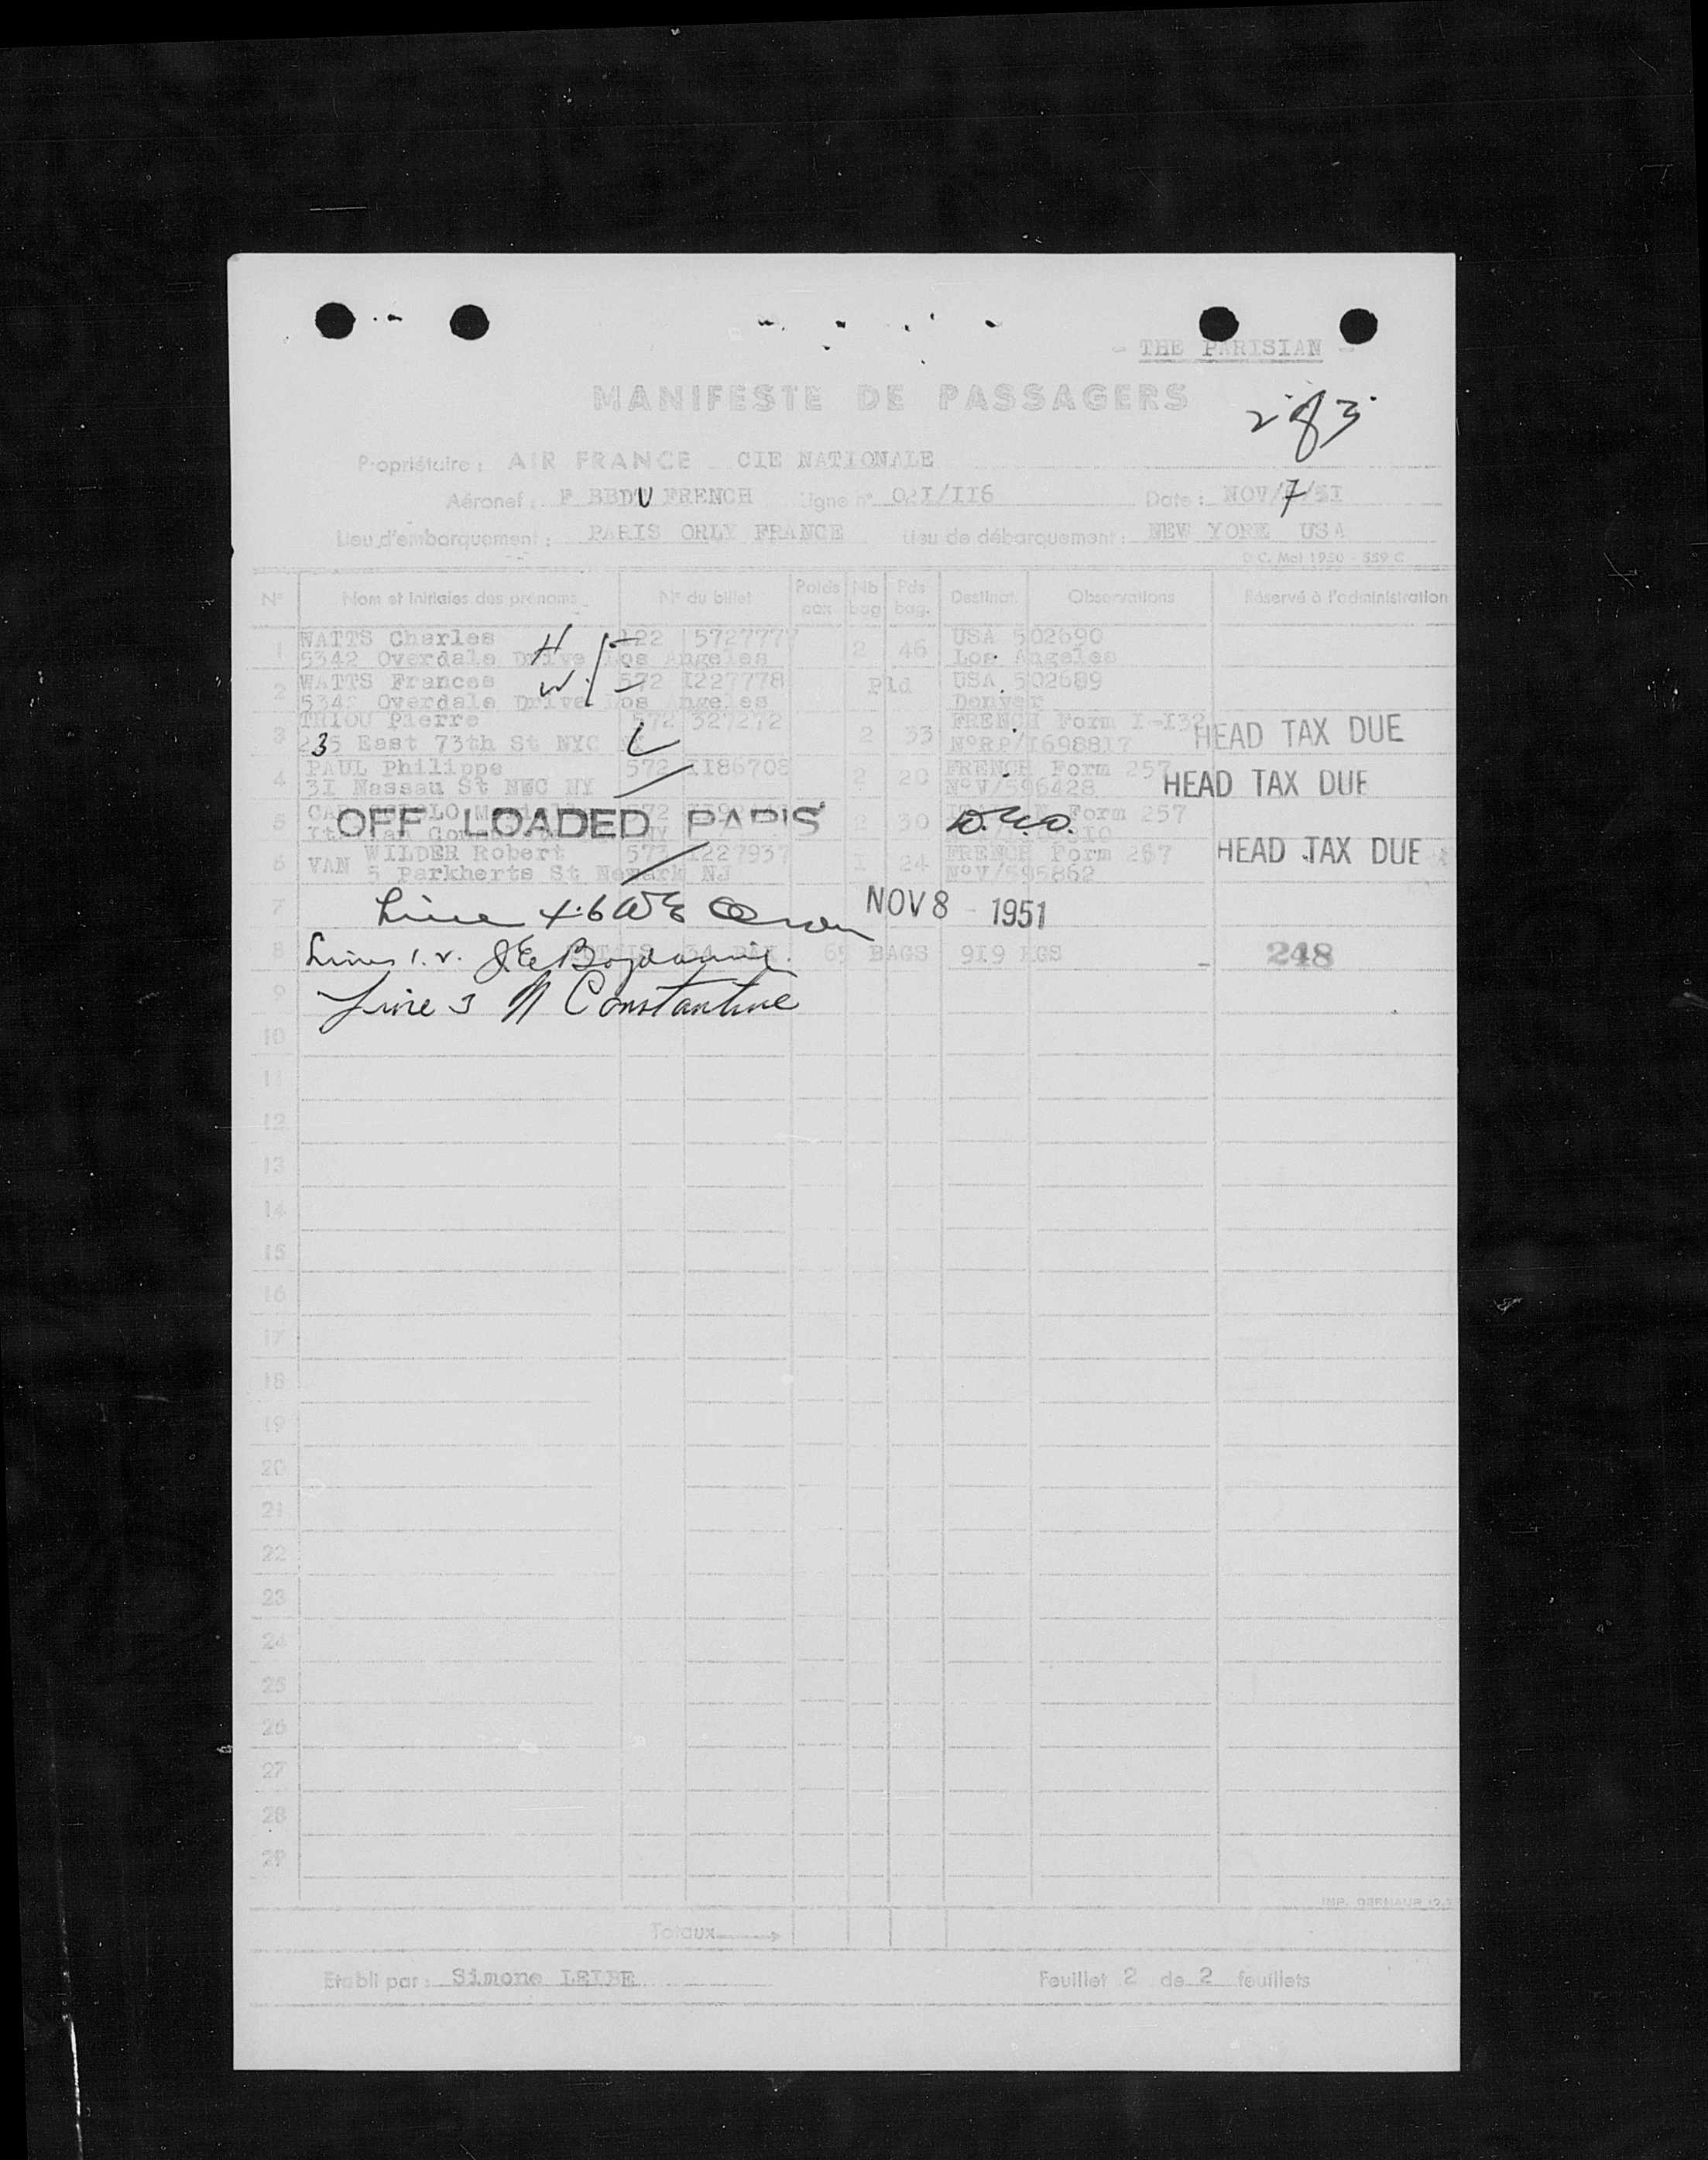 - THE PARISIAN -
MANIFESTE DE PASSAGERS
2 of 3
Propriétaire : AIR FRANCE CIE NATIONALE
Aéronef : F BBDU FRENCH Ligne n° 02I/II6 Date : NOV/7/5I
Lieu d'embarquement : PARIS ORLY FRANCE Lieu de débarquement : NEW YORK USA
D C. Mai 1950 - 559 C
N° Nom et initiales des prénoms N° du billet Poids pax Nb bag Pds bag. Destinat. Observations Réservé à l'administration
1 WATTS Charles H 5727777 2 46 USA 502690
5342 Overdale Drive Los Angeles Los Angeles
2 WATTS Frances W 572 I227778 Pld USA 502689
5342 Overdale Drive Los Angeles Denver
3 THIOU Pierre 572 327272 2 33 FRENCH Form I-I32 HEAD TAX DUE
235 East 73th St NYC N°RP/I698817
4 PAUL Philippe 572 II86708 2 20 FRENCH Form 257 HEAD TAX DUE
3I Nassau St NWC NY N°V/596428
5 OFF LOADED PARIS 2 30 Form 257
6 VAN WILDER Robert 573 I227937 I 24 FRENCH Form 257 HEAD TAX DUE
5 Parkherts St Newark NJ N°V/595862
7 Line 4.6 NOV 8 - 1951
8 Lines 1.2. TOTALS 34 PAX 65 BAGS 9I9 KGS - 248
9 Line 3 N Constantine
10
11
12
13
14
15
16
17
18
19
20
21
22
23
24
25
26
27
28
29
Totaux
Etabli par : Simone Feuillet 2 de 2 feuillets